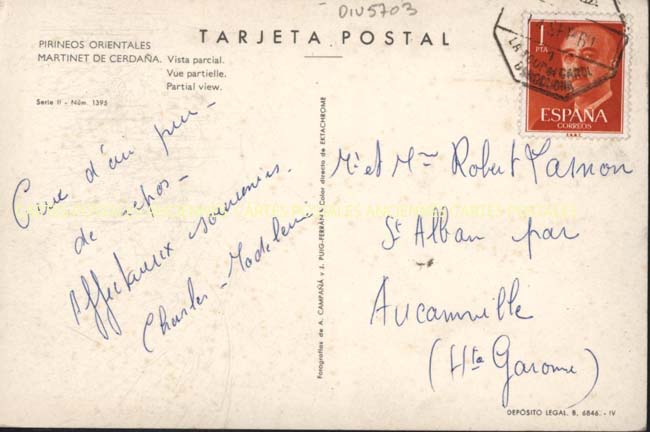 DIV5703
TARJETA POSTAL
PIRINEOS ORIENTALES
MARTINET DE CERDAÑA. Vista parcial.
Vue partielle.
Partial view.
Serie II - Núm. 1395
Cure d'air pur -
de repos -
Affectueux souvenirs.
Charles - Madeleine
Fotografías de A. CAMPAÑÁ y J. PUIG-FERRÁN - Color directo de EKTACHROME
1
PTA
ESPAÑA
CORREOS
LA TOUR de CAROL
BARCELONA
Mr et Mme Robert
St Alban par
Aucamville
(Hte Garonne)
DEPÓSITO LEGAL. B. 6846. - IV
CARTES POSTALES ANCIENNES CARTES POSTALES